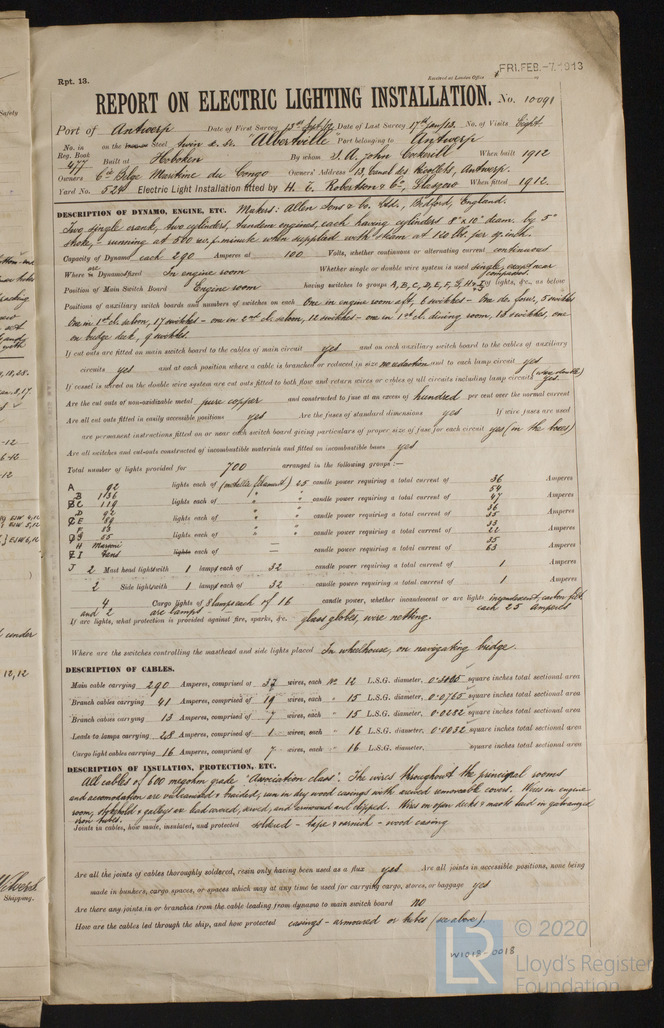 Rpt. 13.
Received at London Office
FRI. FEB. -7. 1913
REPORT ON ELECTRIC LIGHTING INSTALLATION. No. 10091
Port of Antwerp Date of First Survey 13th Sept/12 Date of Last Survey 17th Jan/13 No. of Visits Eight
No. in Reg. Book 477 on the Iron or Steel twin s. sr. Albertville Port belonging to Antwerp
Built at Hoboken By whom S. A. John Cockerill When built 1912
Owners Cie Belge Maritime du Congo Owners' Address 13, Canal des Récollets, Antwerp.
Yard No. 524 Electric Light Installation fitted by H. C. Robertson & Co, Glasgow When fitted 1912.
DESCRIPTION OF DYNAMO, ENGINE, ETC. Makers: Allen Sons & Co. Ltd., Bedford, England.
Two single crank, two cylinders, tandem engines, each having cylinders 8" x 10" diam. by 5"
stroke, running at 560 rev. p. minute when supplied with steam at 120 lbs. per sq. inch.
Capacity of Dynamo each 290 Amperes at 100 Volts, whether continuous or alternating current continuous
Where is are Dynamo fixed In engine room Whether single or double wire system is used single, except near compasses.
Position of Main Switch Board Engine room having switches to groups A, B, C, D, E, F, G, H & J of lights, &c., as below
Positions of auxiliary switch boards and numbers of switches on each One in engine room aft, 6 switches - One do. fore, 5 switches
One in 1st cl. saloon, 17 switches - one in 2nd cl. saloon, 12 switches - one in 1st cl. dining room, 18 switches, one
on bridge deck, 9 switches.
If cut outs are fitted on main switch board to the cables of main circuit yes and on each auxiliary switch board to the cables of auxiliary
circuits yes and at each position where a cable is branched or reduced in size no reduction and to each lamp circuit yes
If vessel is wired on the double wire system are cut outs fitted to both flow and return wires or cables of all circuits including lamp circuits yes.
Are the cut outs of non-oxidizable metal pure copper and constructed to fuse at an excess of hundred per cent over the normal current
Are all cut outs fitted in easily accessible positions yes Are the fuses of standard dimensions yes If wire fuses are used
are permanent instructions fitted on or near each switch board giving particulars of proper size of fuse for each circuit yes (in the boxes)
Are all switches and cut-outs constructed of incombustible materials and fitted on incombustible bases yes
Total number of lights provided for 700 arranged in the following groups :—
A 92 lights each of (metallic filament) 25 candle power requiring a total current of 36 Amperes
B 136 lights each of " " candle power requiring a total current of 54 Amperes
C 119 47
D 92 lights each of " " candle power requiring a total current of 36 Amperes
E 89 35
F 83 lights each of " " candle power requiring a total current of 33 Amperes
G 55 22
H Marconi 35
I Fans lights each of — candle power requiring a total current of 63 Amperes
J 2 Mast head light with 1 lamps each of 32 candle power requiring a total current of 1 Amperes
2 Side light with 1 lamps each of 32 candle power requiring a total current of 1 Amperes
4 Cargo lights of 8 lamps each of 16 candle power, whether incandescent or arc lights incandescent, carbon fil.
and 2 arc lamps each 25 Amperes
If arc lights, what protection is provided against fire, sparks, &c. glass globes, wire netting.
Where are the switches controlling the masthead and side lights placed In wheelhouse, on navigating bridge.
DESCRIPTION OF CABLES.
Main cable carrying 290 Amperes, comprised of 37 wires, each No 12 L.S.G. diameter, 0.3085 square inches total sectional area
Branch cables carrying 41 Amperes, comprised of 19 wires, each " 15 L.S.G. diameter, 0.0765 square inches total sectional area
Branch cables carrying 13 Amperes, comprised of 7 wires, each " 15 L.S.G. diameter, 0.0282 square inches total sectional area
Leads to lamps carrying 2.8 Amperes, comprised of 1 wires, each " 16 L.S.G. diameter, 0.0032 square inches total sectional area
Cargo light cables carrying 16 Amperes, comprised of 7 wires, each " 16 L.S.G. diameter, square inches total sectional area
DESCRIPTION OF INSULATION, PROTECTION, ETC.
All cables of 600 megohm grade "Association class". The wires throughout the principal rooms
and accomodation are vulcanised & braided, run in dry wood casings with screwed removable covers. Wires in engine
room, stokehold & galleys are lead covered, and armoured and clipped. Wires on open decks & masts laid in galvanized
iron tubes.
Joints in cables, how made, insulated, and protected soldered - tape & varnish - wood casing
Are all the joints of cables thoroughly soldered, resin only having been used as a flux yes Are all joints in accessible positions, none being
made in bunkers, cargo spaces, or spaces which may at any time be used for carrying cargo, stores, or baggage yes
Are there any joints in or branches from the cable leading from dynamo to main switch board no
How are the cables led through the ship, and how protected casings - armoured or tubes (see above).
W1013-0018
LR
© 2020
Lloyd's Register
Foundation